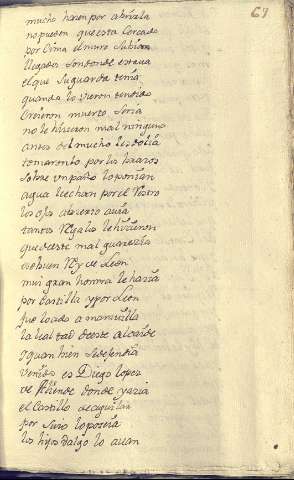 67
mucho hazen por abrilla
no pueden questa cercado
por cima el muro subian
llegados son donde estaua
el que su guarda tenia
quando lo vieron tendido
creieron muerto seria
no le hizieron mal ninguno
antes del mucho les dolia
tomaronlo por los braços
sobre un paño lo ponian
agua le echan por el rostro
los ojos abierto auia
tantos regalos le hizieron
que deste mal guarezia
el buen Rey de Leon
mui gran honrra le hazia
por Castilla y por Leon
fue loado a marauilla
la lealtad deste alcaide
y quan bien se defendia
venido es Diego lopez
de allende donde yazia
el Castillo de aguilar
por suio lo poseia
los hijos dalgo lo auian